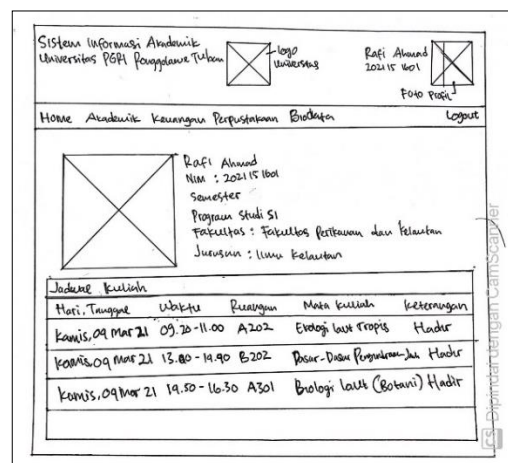 Sistem Informasi Akademik
Universitas PGRI Ronggolawe Tuban
logo
universitas
Rafi Ahmad
2021 15 1601
Foto Profil
Home Akademik Keuangan Perpustakaan Biodata Logout
Rafi Ahmad
NIM : 2021 15 1601
Semester
Program Studi S1
Fakultas : Fakultas Perikanan dan Kelautan
Jurusan : Ilmu Kelautan
Jadwal Kuliah
Hari, Tanggal Waktu Ruangan Mata Kuliah Keterangan
Kamis, 09 Mar 21 09.20-11.00 A202 Ekologi laut Tropis Hadir
Kamis, 09 Mar 21 13.00-14.40 B202 Dasar-Dasar Hadir
Kamis, 09 Mar 21 14.50-16.30 A301 Biologi Laut (Botani) Hadir
CS Dipindai dengan CamScanner